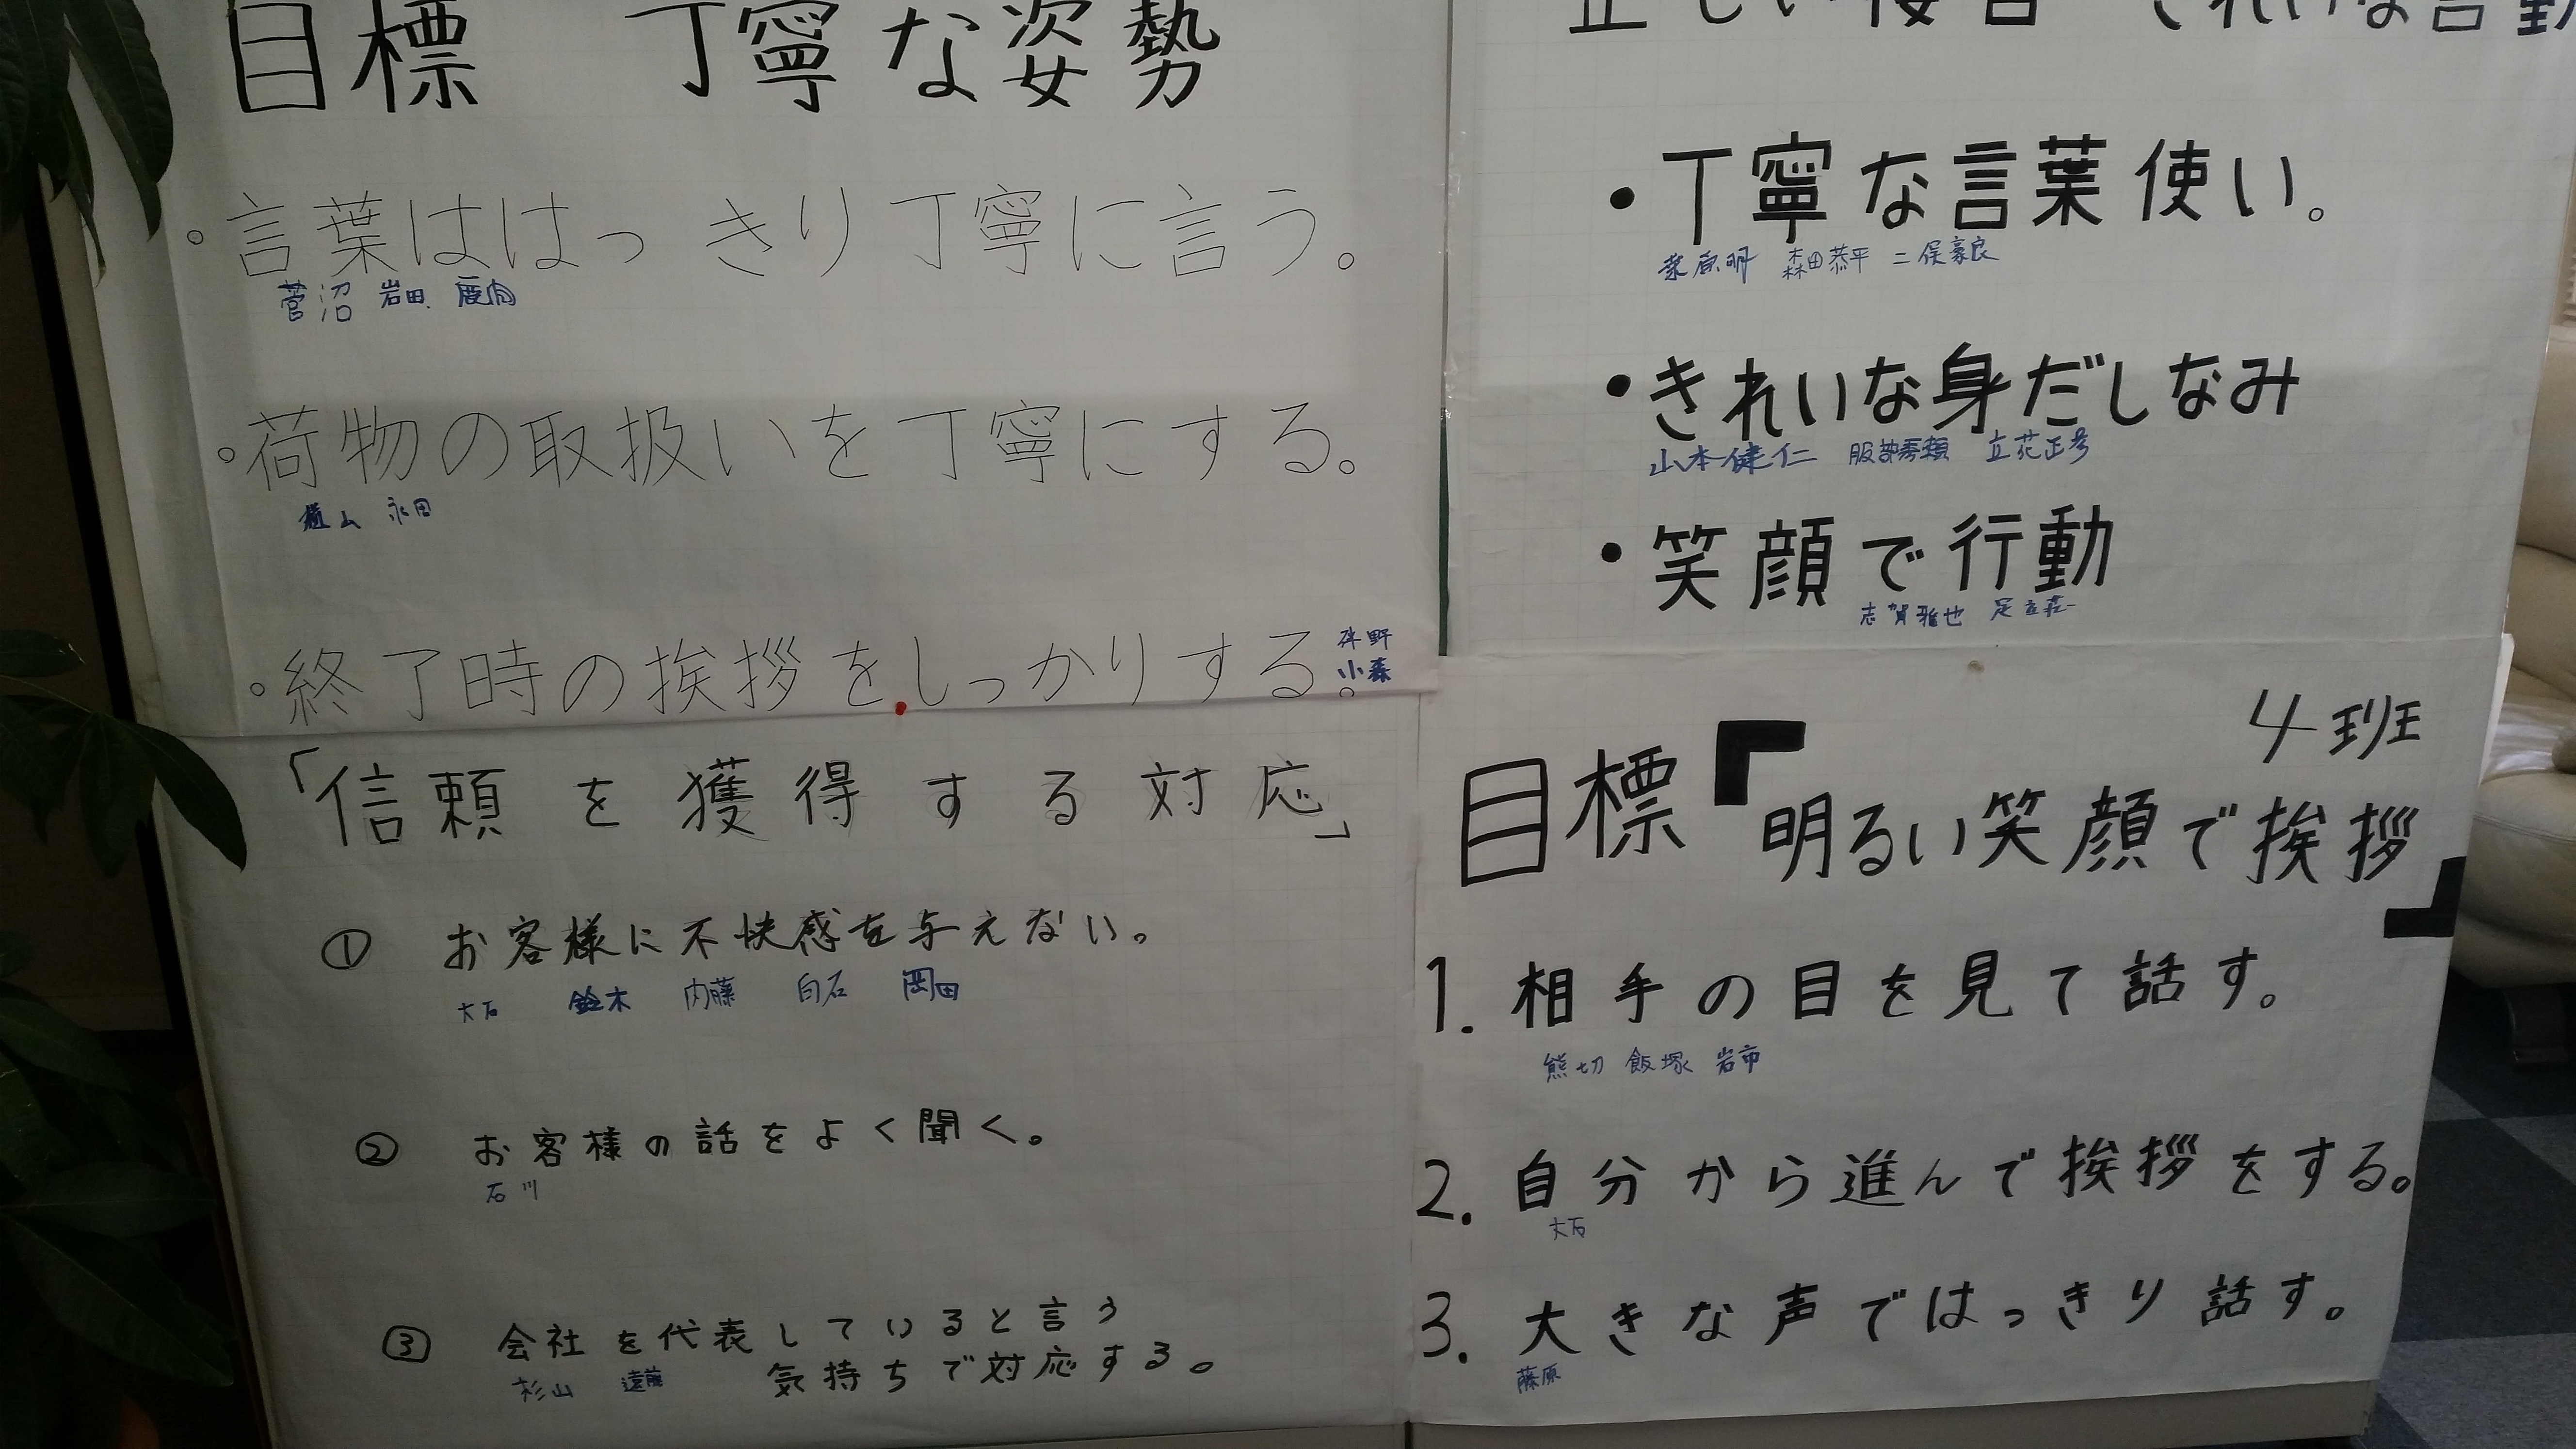 目標 丁寧な姿勢
。言葉ははっきり丁寧に言う。
菅沼 岩田
。荷物の取扱いを丁寧にする。
永田
。終了時の挨拶をしっかりする。
伴野
小森
きれいな言動
・丁寧な言葉使い。
森田恭平 二俣豪良
・きれいな身だしなみ
山本健仁 服部秀頼 立花正号
・笑顔で行動
志賀雅也 足立荘一
「信頼を獲得する対応」
① お客様に不快感を与えない。
大石 鈴木 内藤 白石 岡田
② お客様の話をよく聞く。
石川
③ 会社を代表していると言う
気持ちで対応する。
杉山 遠藤
4班
目標「明るい笑顔で挨拶」
1. 相手の目を見て話す。
熊切 飯塚 岩市
2. 自分から進んで挨拶をする。
大石
3. 大きな声ではっきり話す。
藤原